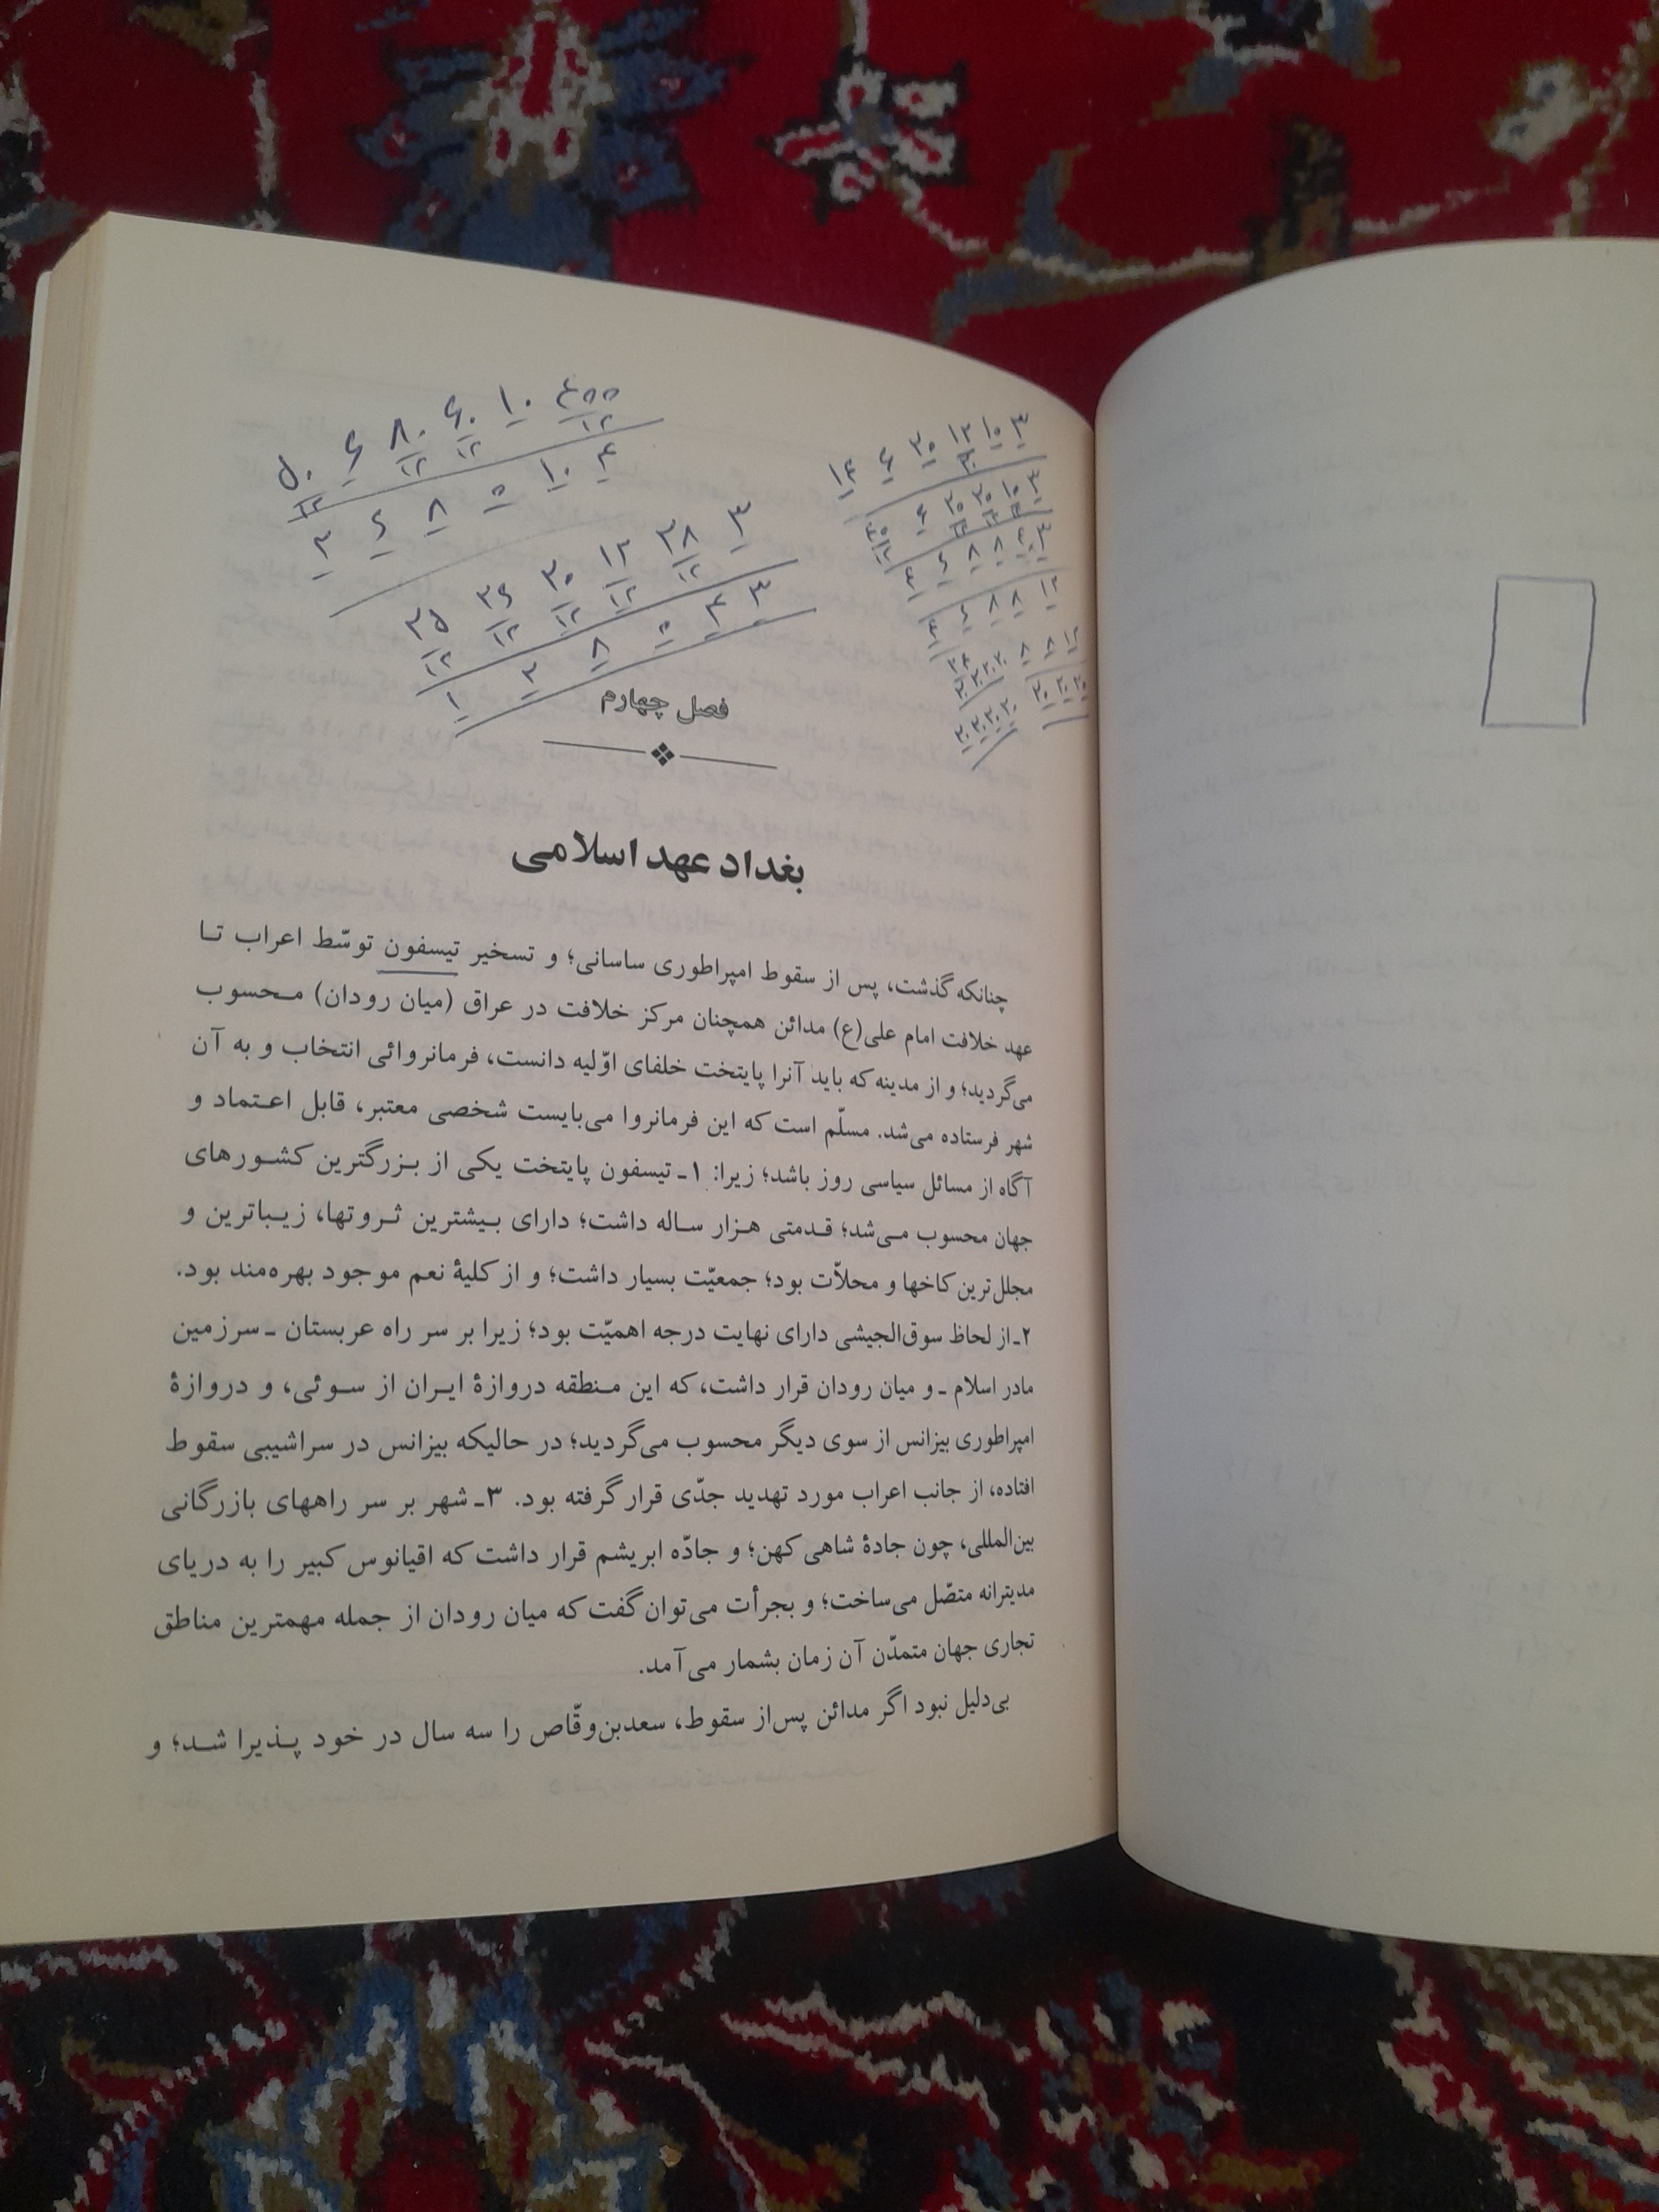 ۴۰۰ ۱۰ ۶۰ ۸۰ ۶
۱۲ ۱۲ ۱۲ ۱۲
۴ ۱۰ ۰ ۸ ۶ ۳
۳ ۳۸ ۱۲ ۳۰ ۳۶ ۳۵
۱۲ ۱۲ ۱۲ ۱۲ ۱۲
۳ ۲ ۰ ۸ ۳ ۱
۳ ۱۰ ۱۲ ۳۰ ۶ ۱۴
فصل چهارم
بغداد عهد اسلامی
چنانکه گذشت، پس از سقوط امپراطوری ساسانی؛ و تسخیر تیسفون توسّط اعراب تا
عهد خلافت امام علی(ع) مدائن همچنان مرکز خلافت در عراق (میان رودان) محسوب
می‌گردید؛ و از مدینه که باید آنرا پایتخت خلفای اوّلیه دانست، فرمانروائی انتخاب و به آن
شهر فرستاده می‌شد. مسلّم است که این فرمانروا می‌بایست شخصی معتبر، قابل اعتماد و
آگاه از مسائل سیاسی روز باشد؛ زیرا: ۱ـ تیسفون پایتخت یکی از بزرگترین کشورهای
جهان محسوب می‌شد؛ قدمتی هزار ساله داشت؛ دارای بیشترین ثروتها، زیباترین و
مجلل‌ترین کاخها و محلاّت بود؛ جمعیّت بسیار داشت؛ و از کلیهٔ نعم موجود بهره‌مند بود.
۲ـ از لحاظ سوق‌الجیشی دارای نهایت درجه اهمیّت بود؛ زیرا بر سر راه عربستان ـ سرزمین
مادر اسلام ـ و میان رودان قرار داشت، که این منطقه دروازهٔ ایران از سوئی، و دروازهٔ
امپراطوری بیزانس از سوی دیگر محسوب می‌گردید؛ در حالیکه بیزانس در سراشیبی سقوط
افتاده، از جانب اعراب مورد تهدید جدّی قرار گرفته بود. ۳ـ شهر بر سر راههای بازرگانی
بین‌المللی، چون جادهٔ شاهی کهن؛ و جادّه ابریشم قرار داشت که اقیانوس کبیر را به دریای
مدیترانه متصّل می‌ساخت؛ و بجرأت می‌توان گفت که میان رودان از جمله مهمترین مناطق
تجاری جهان متمدّن آن زمان بشمار می‌آمد.
بی‌دلیل نبود اگر مدائن پس‌از سقوط، سعدبن‌وقّاص را سه سال در خود پذیرا شد؛ و